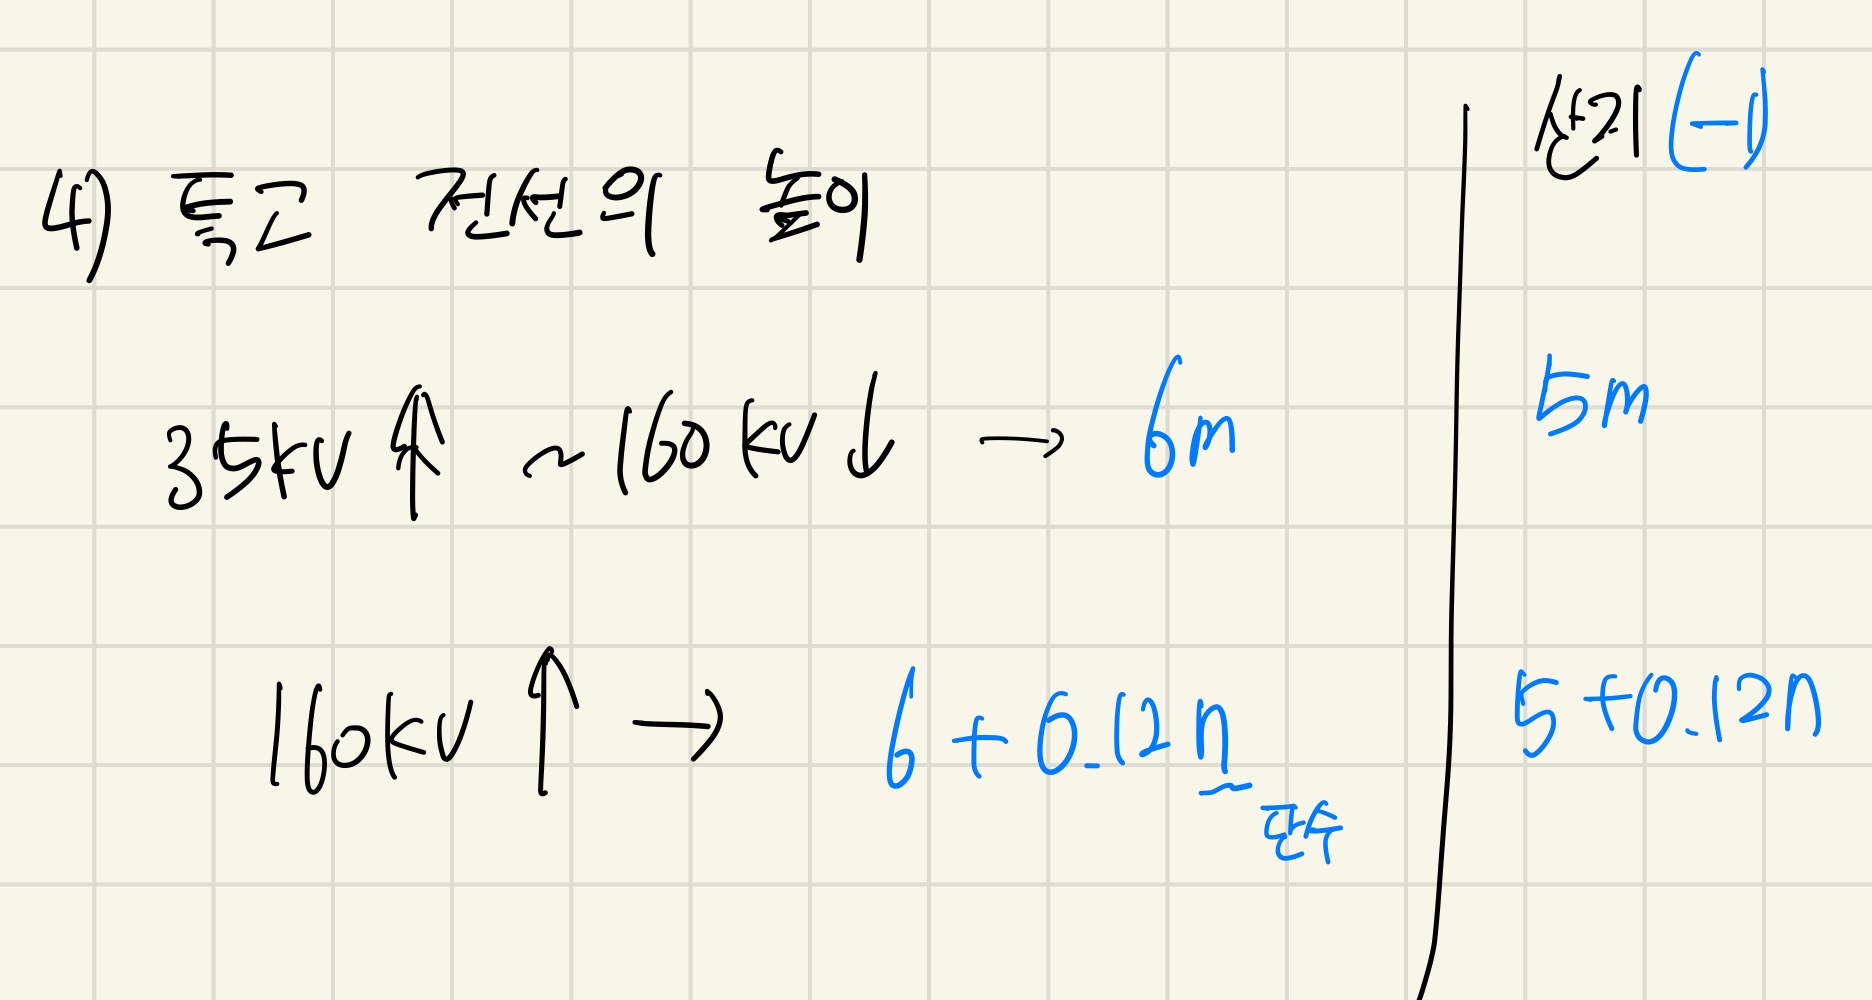 산지 (-1)
4) 특고 전선의 높이
35kV ↑ ~ 160kV ↓ → 6m
5m
160kV ↑ → 6 + 0.12n
5 + 0.12n
단수